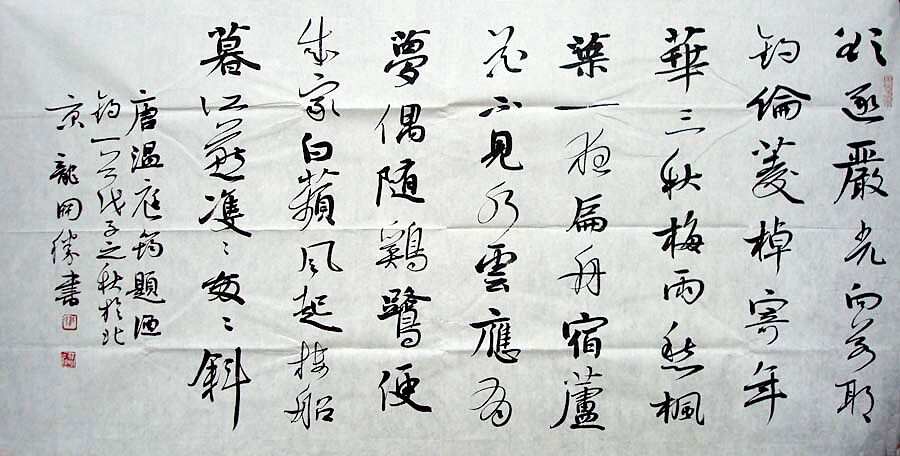 逐嚴光向若耶
钓綸菱棹寄年
華三秋梅雨愁楓
葉一夜扁舟宿蘆
花不見水雲應有
夢偶随鷄鷺便
成家白蘋風起樓船
暮江燕隻〻斜
唐溫庭筠題
一首戊子之秋於北
京龍開勝書